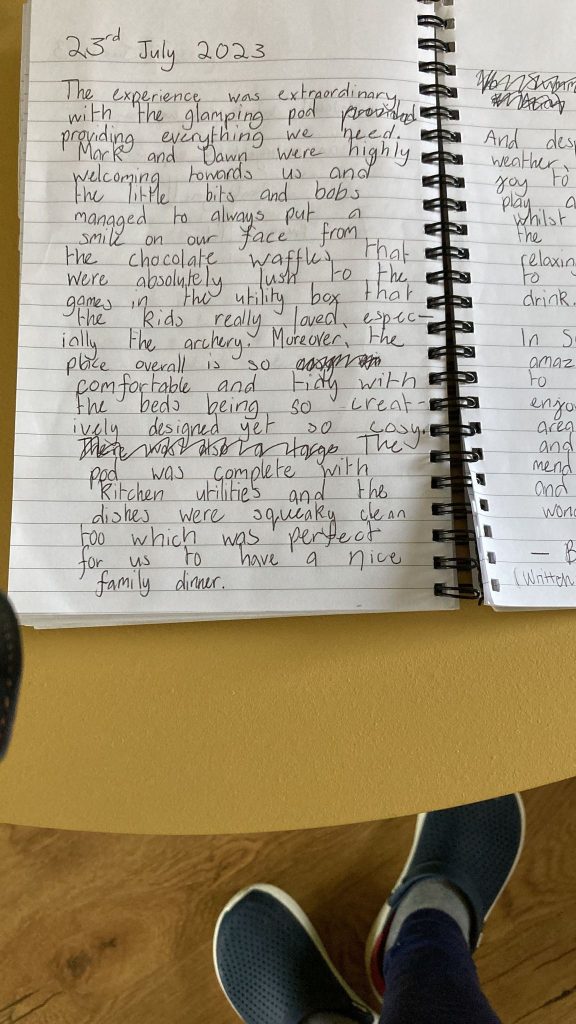 23rd July 2023
The experience was extraordinary
with the glamping pod provided
providing everything we need.
Mark and Dawn were highly
welcoming towards us and
the little bits and bobs
managed to always put a
smile on our face from
the chocolate waffles that
were absolutely lush to the
games in the utility box that
the kids really loved, espec-
ially the archery. Moreover, the
place overall is so
comfortable and tidy with
the beds being so creat-
ively designed yet so cosy.
There was also a large The
pod was complete with
kitchen utilities and the
dishes were squeaky clean
too which was perfect
for us to have a nice
family dinner.
And des
weather,
joy to
play a
whilst
the
relaxin
to
drink.
In S
amaz
to
enjo
area
and
mend
and
won
- B
(Written